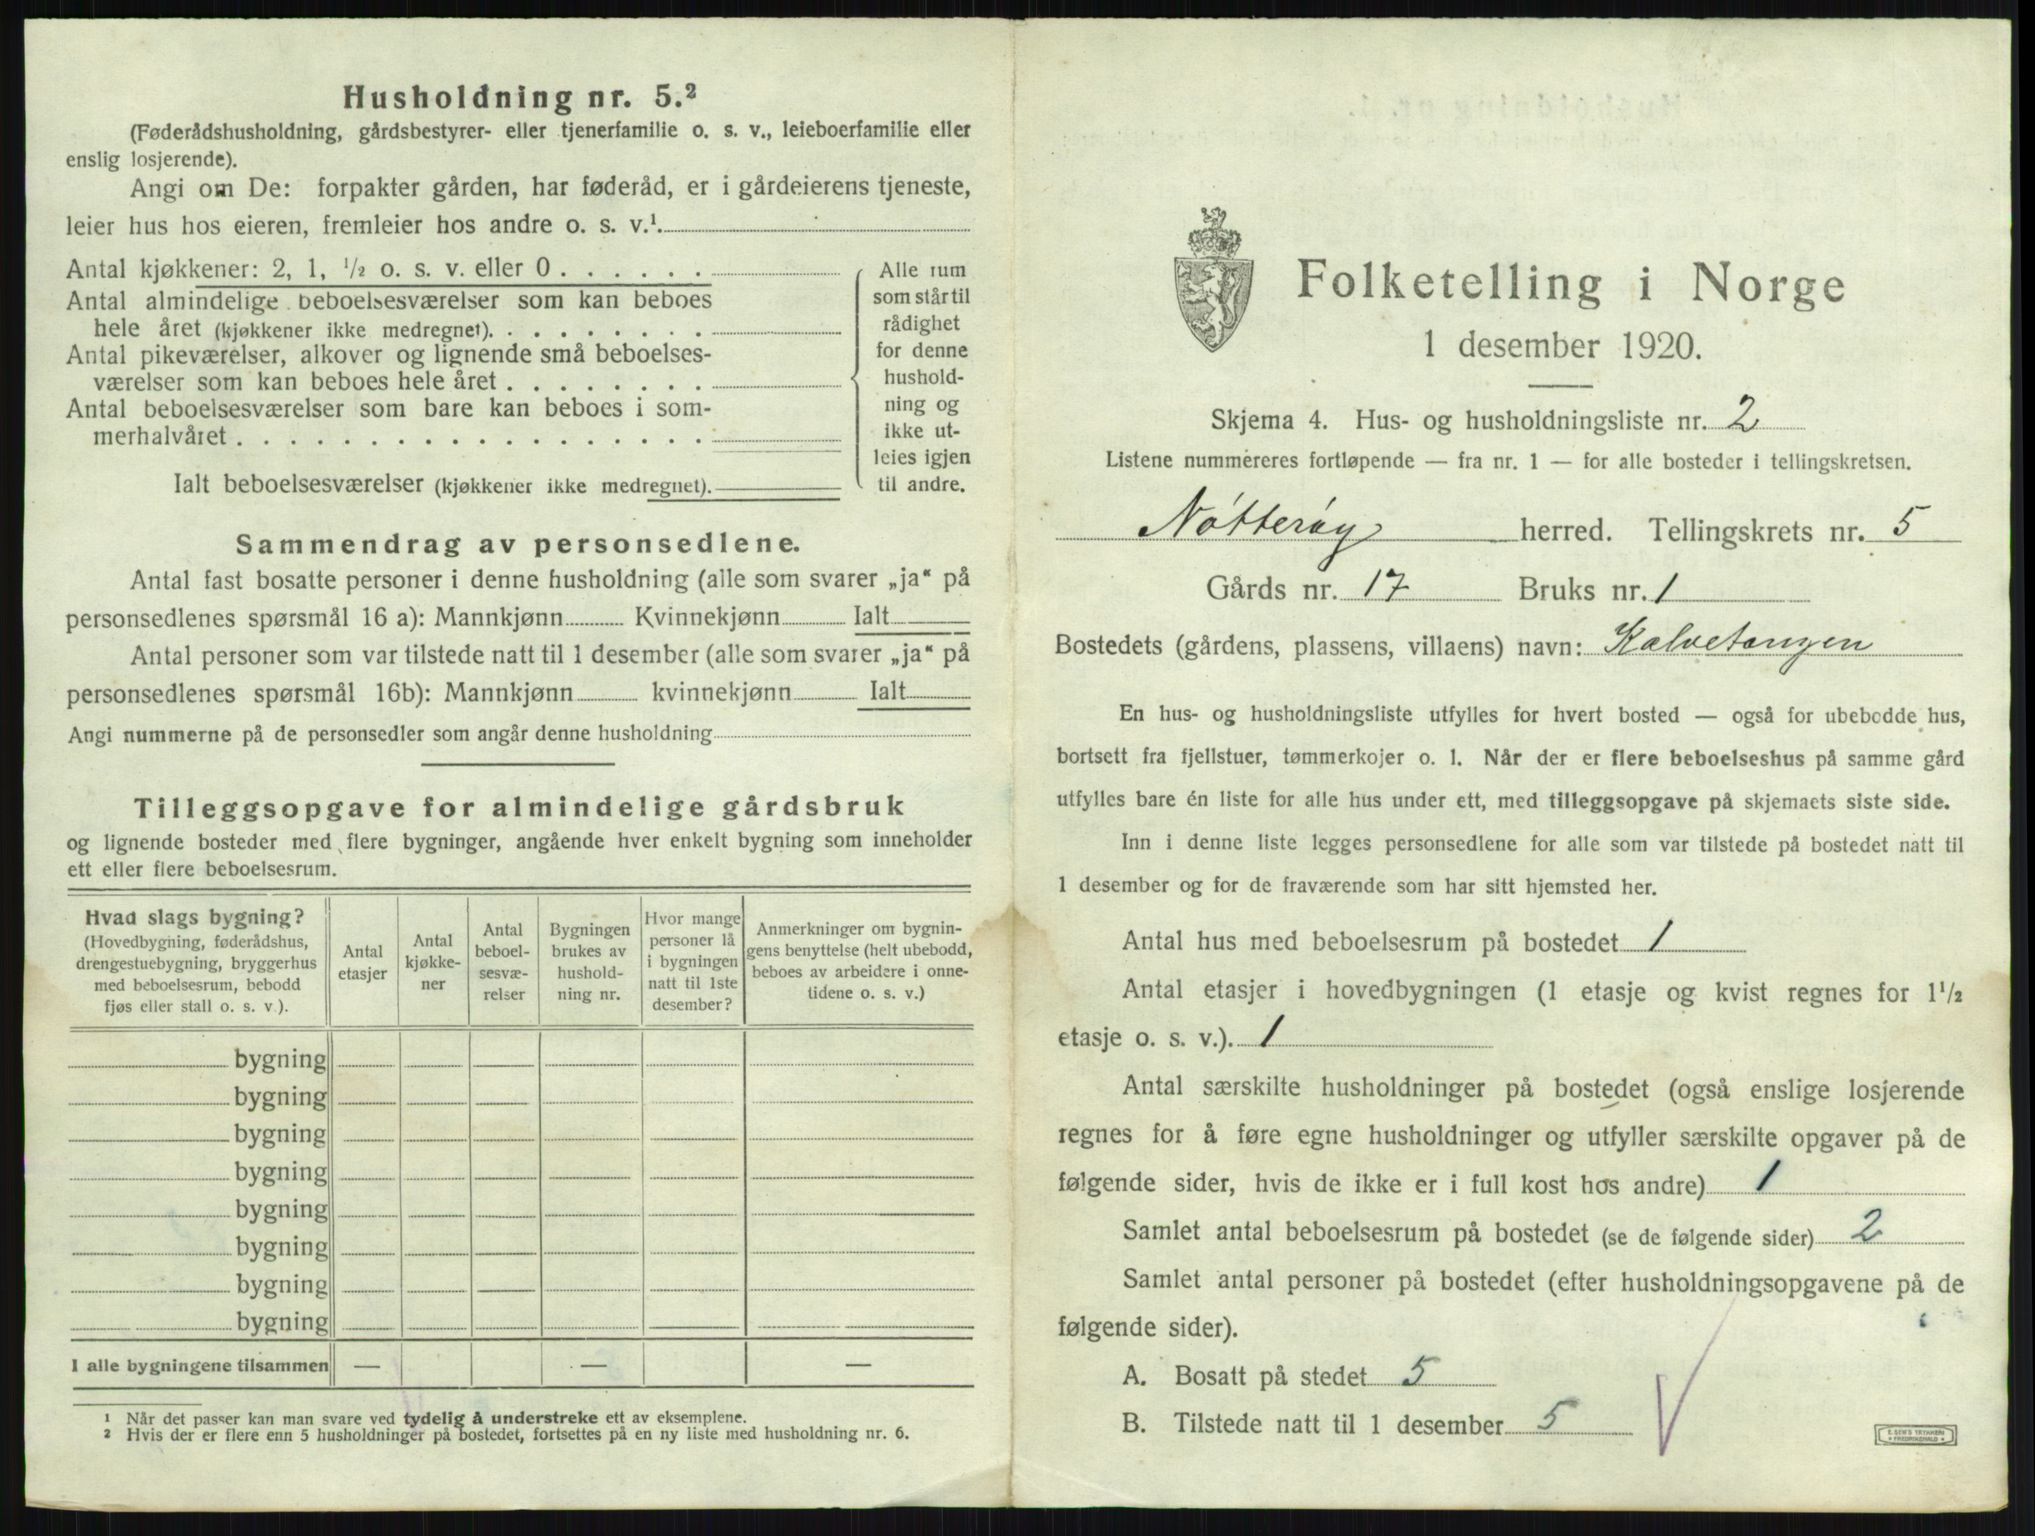 Husholdning nr. 5.²
(Føderådshusholdning, gårdsbestyrer- eller tjenerfamilie o. s. v., leieboerfamilie eller
enslig losjerende).
Angi om De: forpakter gården, har føderåd, er i gårdeierens tjeneste,
leier hus hos eieren, fremleier hos andre o. s. v.¹
Antal kjøkkener: 2, 1, ½ o. s. v. eller 0 . . . . . .
Antal almindelige beboelsesværelser som kan beboes
hele året (kjøkkener ikke medregnet). . . . . . . . .
Antal pikeværelser, alkover og lignende små beboelses-
værelser som kan beboes hele året . . . . . . . .
Antal beboelsesværelser som bare kan beboes i som-
merhalvåret . . . . . . . . . . . . . . . . . .
Ialt beboelsesværelser (kjøkkener ikke medregnet).
Alle rum
som står til
rådighet
for denne
hushold-
ning og
ikke ut-
leies igjen
til andre.
Sammendrag av personsedlene.
Antal fast bosatte personer i denne husholdning (alle som svarer „ja“ på
personsedlenes spørsmål 16 a): Mannkjønn Kvinnekjønn Ialt
Antal personer som var tilstede natt til 1 desember (alle som svarer „ja“ på
personsedlenes spørsmål 16b): Mannkjønn kvinnekjønn Ialt
Angi nummerne på de personsedler som angår denne husholdning
Tilleggsopgave for almindelige gårdsbruk
og lignende bosteder med flere bygninger, angående hver enkelt bygning som inneholder
ett eller flere beboelsesrum.
Hvad slags bygning?
(Hovedbygning, føderådshus,
drengestuebygning, bryggerhus
med beboelsesrum, bebodd
fjøs eller stall o. s. v.).
Antal
etasjer
Antal
kjøkke-
ner
Antal
beboel-
sesvæ-
relser
Bygningen
brukes av
hushold-
ning nr.
Hvor mange
personer lå
i bygningen
natt til 1ste
desember?
Anmerkninger om bygnin-
gens benyttelse (helt ubebodd,
beboes av arbeidere i onne-
tidene o. s. v.)
bygning
bygning
bygning
bygning
bygning
bygning
bygning
bygning
I alle bygningene tilsammen — — —
1 Når det passer kan man svare ved tydelig å understreke ett av eksemplene.
2 Hvis der er flere enn 5 husholdninger på bostedet, fortsettes på en ny liste med husholdning nr. 6.
Folketelling i Norge
1 desember 1920.
Skjema 4. Hus- og husholdningsliste nr. 2
Listene nummereres fortløpende — fra nr. 1 — for alle bosteder i tellingskretsen.
Nøtterøy herred. Tellingskrets nr. 5
Gårds nr. 17 Bruks nr. 1
Bostedets (gårdens, plassens, villaens) navn: Kalvetangen
En hus- og husholdningsliste utfylles for hvert bosted — også for ubebodde hus,
bortsett fra fjellstuer, tømmerkojer o. l. Når der er flere beboelseshus på samme gård
utfylles bare én liste for alle hus under ett, med tilleggsopgave på skjemaets siste side.
Inn i denne liste legges personsedlene for alle som var tilstede på bostedet natt til
1 desember og for de fraværende som har sitt hjemsted her.
Antal hus med beboelsesrum på bostedet 1
Antal etasjer i hovedbygningen (1 etasje og kvist regnes for 1½
etasje o. s. v.). 1
Antal særskilte husholdninger på bostedet (også enslige losjerende
regnes for å føre egne husholdninger og utfyller særskilte opgaver på de
følgende sider, hvis de ikke er i full kost hos andre) 1
Samlet antal beboelsesrum på bostedet (se de følgende sider) 2
Samlet antal personer på bostedet (efter husholdningsopgavene på de
følgende sider).
A. Bosatt på stedet 5
B. Tilstede natt til 1 desember 5